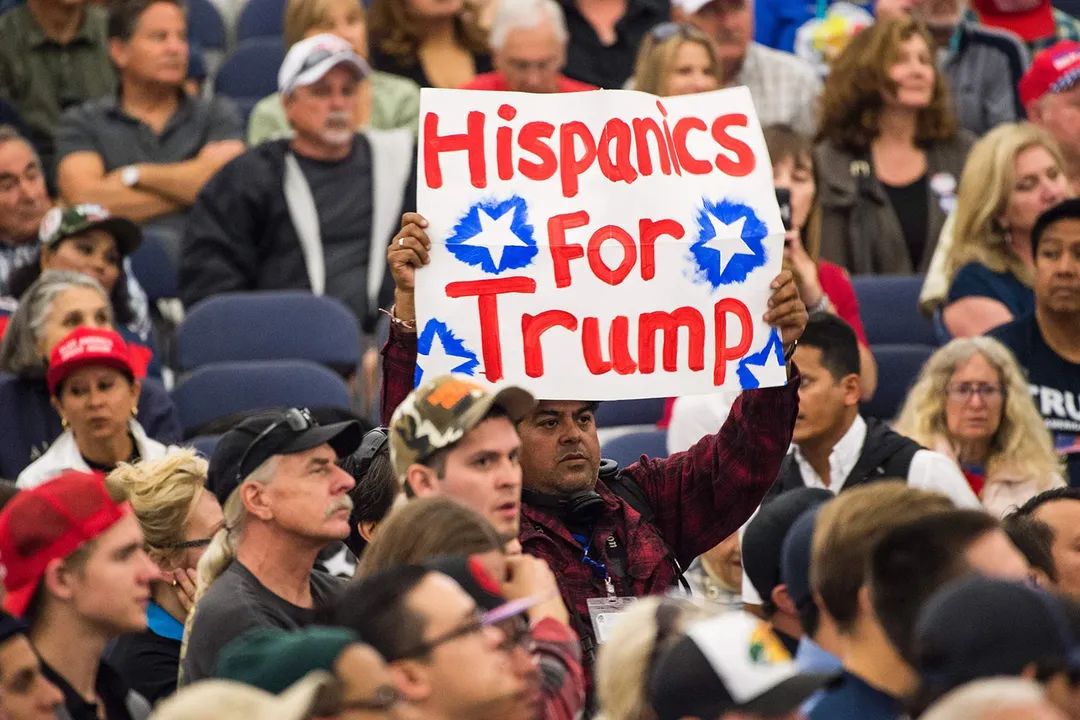 Hispanics
For
Trump
TRUMP